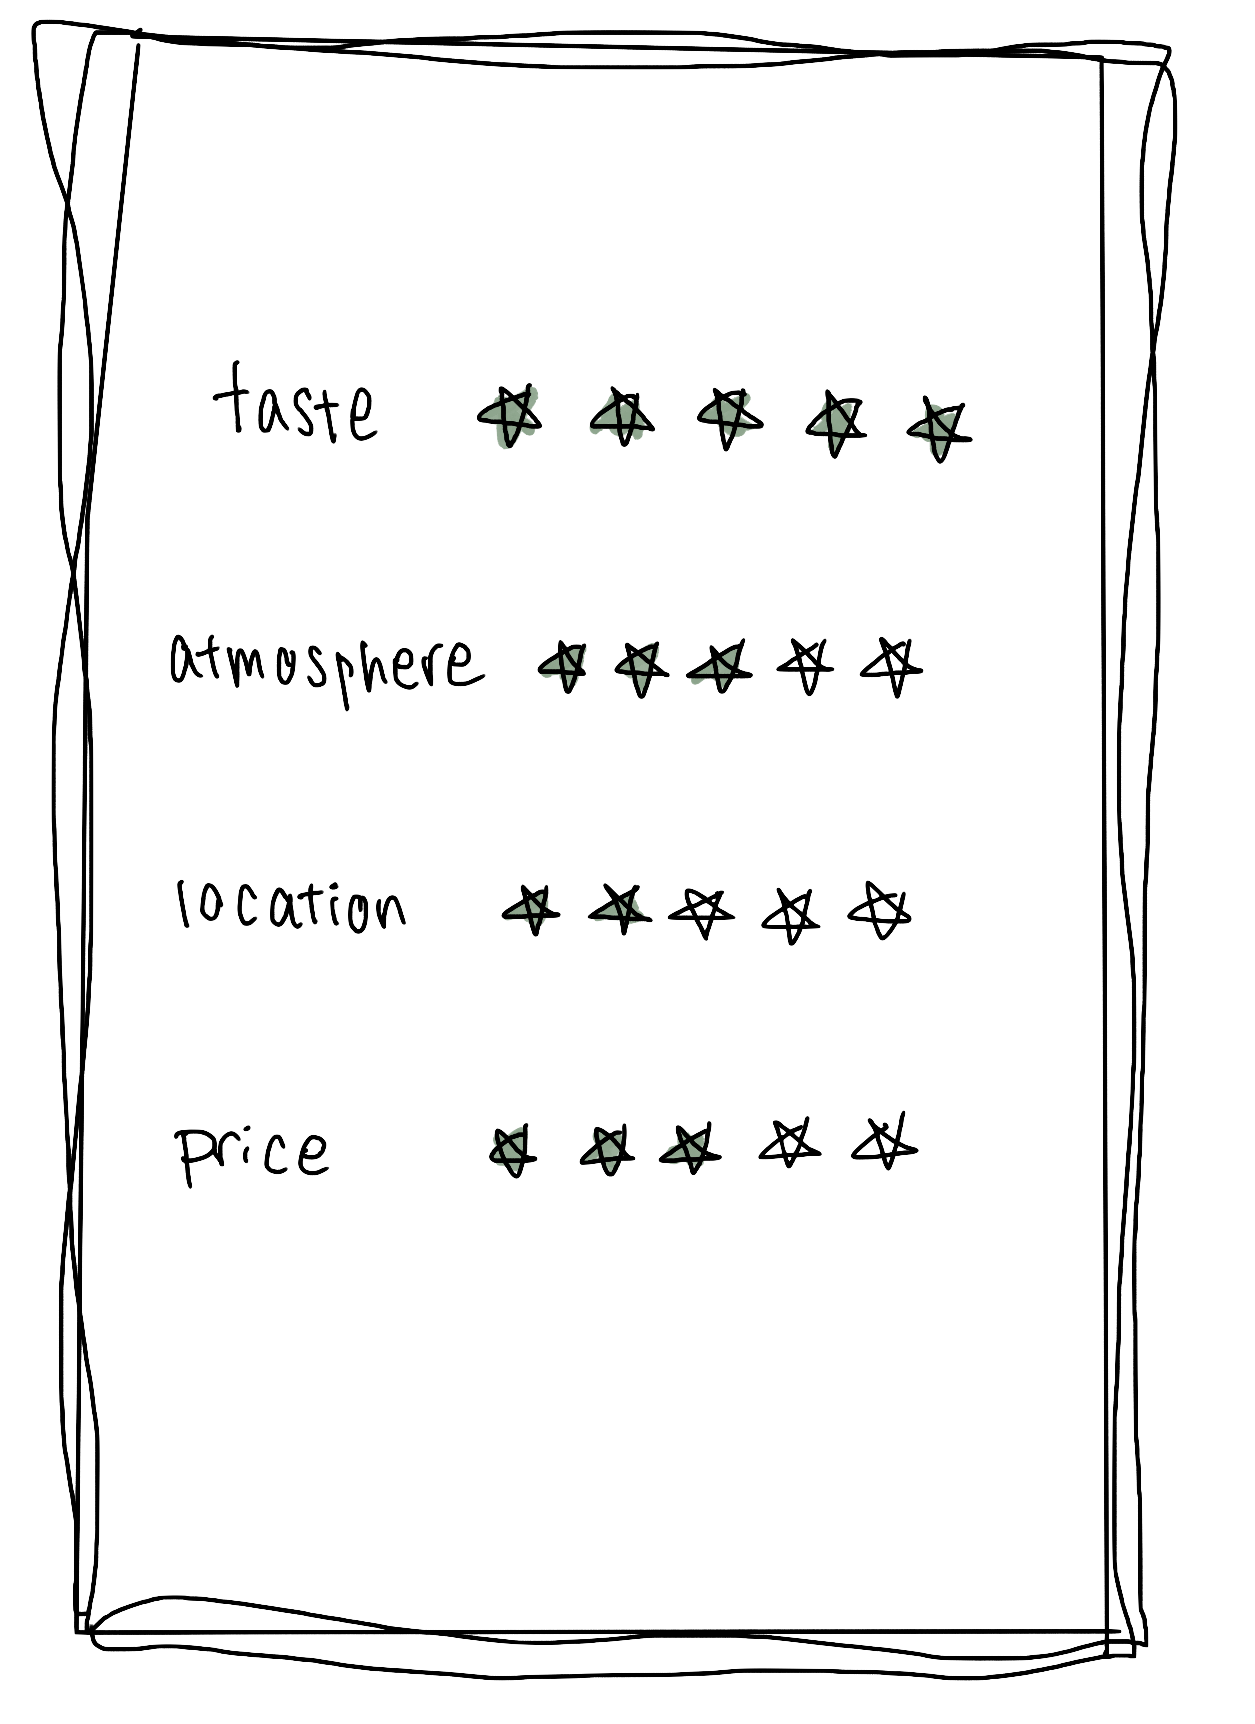 taste
atmosphere
location
price